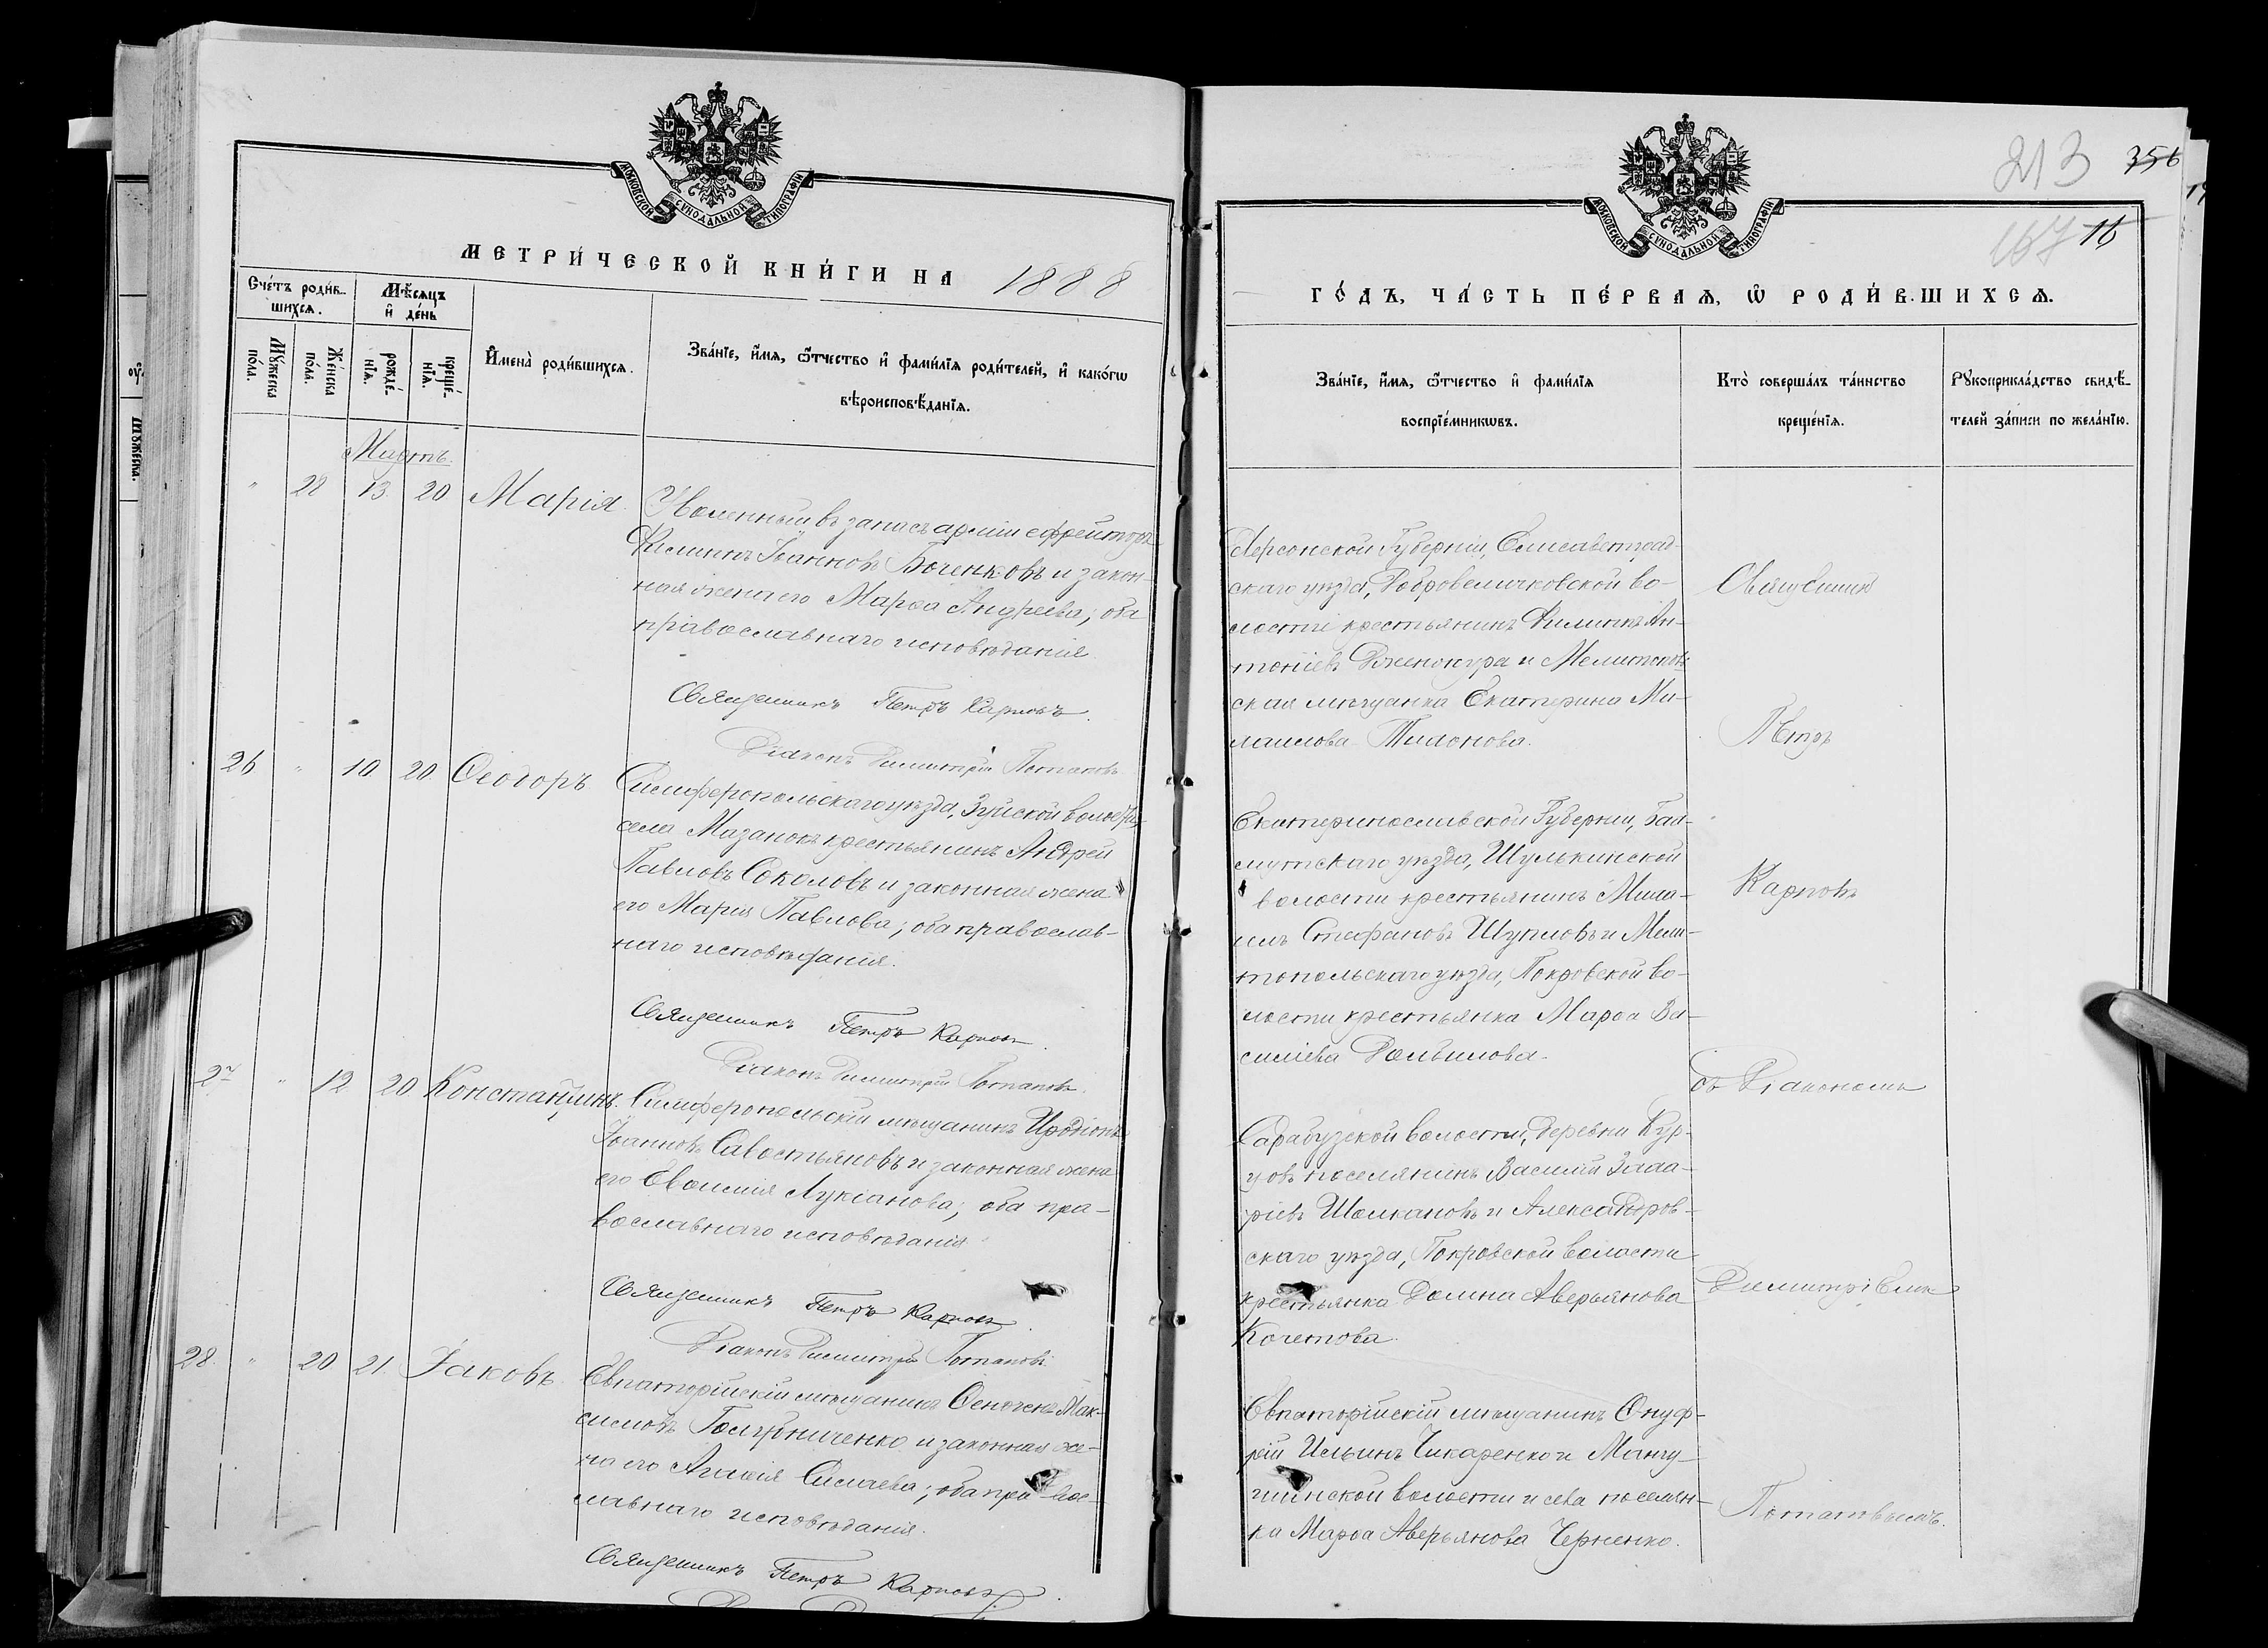 МОСКОВСКОЙ СУНОДАЛЬНОЙ ТИПОГРАФІИ
МЕТРИ́ЧЕСКОЙ КНИ́ГИ НА 1888
Сче́тъ роди́в-
шихсѧ.
Мѣ́сѧцъ
и҆ де́нь
Мꙋ́жеска
по́ла.
Же́нска
по́ла.
рожде́-
нїѧ.
креще́-
нїѧ.
И҆мена̀ роди́вшихсѧ.
Зва́нїе, и҆́мѧ, ѻ҆́тчество и҆ фами́лїѧ роди́телей, и҆ како́гѡ
вѣроисповѣ́данїѧ.
Мартъ.
" 28 13 20 Марія.
Уволенный въ запасъ арміи ефрейторъ
Филиппъ Іоанновъ Боченковъ и закон-
ная жена его Марѳа Андреева; оба
православнаго исповѣданія
Священникъ Петръ Карповъ.
Діаконъ Димитрій Потаповъ.
26 " 10 20 Ѳеодоръ
Симферопольскаго уѣзда, Зуйской волости,
села Мазанокъ крестьянинъ Андрей
Павловъ Соколовъ и законная жена
его Марія Павлова; оба православ-
наго исповѣданія.
Священникъ Петръ Карповъ.
Діаконъ Димитрій Потаповъ.
27 " 12 20 Константинъ.
Симферопольскій мѣщанинъ Иродіонъ
Іоанновъ Савостьяновъ и законная жена
его Евѳимія Лукіанова; оба пра-
вославнаго исповѣданія
Священникъ Петръ Карповъ.
Діаконъ Димитрій Потаповъ.
28. " 20 21. Іаковъ.
Евпаторійскій мѣщанинъ Ѳеногенъ Мак-
симовъ Голубниченко и законная же-
на его Агаѳія Силаева; оба правос-
лавнаго исповѣданія.
Священникъ Петръ Карповъ.
213 356
167 16
МОСКОВСКОЙ СУНОДАЛЬНОЙ ТИПОГРАФІИ
ГО́ДЪ, ЧА́СТЬ ПЕ́РВАѦ, Ѡ҆ РОДИ́ВШИХСѦ.
Зва́нїе, и҆́мѧ, ѻ҆́тчество и҆ фами́лїѧ
воспрїе́мникѡвъ.
Кто̀ соверша́лъ та́инство
креще́нїѧ.
Рꙋкоприкла́дство свидѣ́-
телей за́писи по жела́нїю.
Херсонской Губерніи, Елисаветград-
скаго уѣзда, Добровеличковской во-
лости крестьянинъ Филиппъ Ан-
тоніевъ и Мелитополь-
ская мѣщанка Екатерина Ми-
хаилова Тихонова.
Екатеринославской Губерніи, Бах-
мутскаго уѣзда, Шулькинской
волости крестьянинъ Миха-
илъ Стефановъ Шупловъ и Мели-
топольскаго уѣзда, Покровской во-
лости крестьянка Марѳа Ва-
силіева Долбилова.
Сарабузской волости, деревни Кур-
цовъ поселянинъ Василій Заха-
ріевъ Шолкановъ и Александров-
скаго уѣзда, Покровской волости
крестьянка Домна Аверьянова
Кочетова.
Евпаторійскій мѣщанинъ Онуф-
рій Ильинъ Чикаренко и Мангу-
шинской волости и села поселян-
ка Марѳа Аверьянова Черненко.
Священникъ
Петръ
Карповъ
съ Діакономъ
Димитріемъ
Потаповымъ.